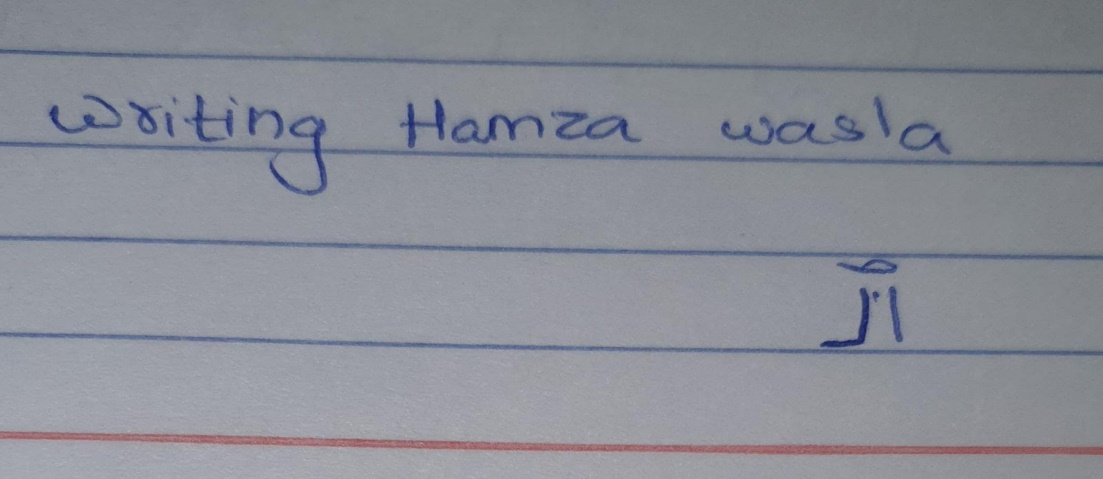 writing Hamza wasla
ٱل